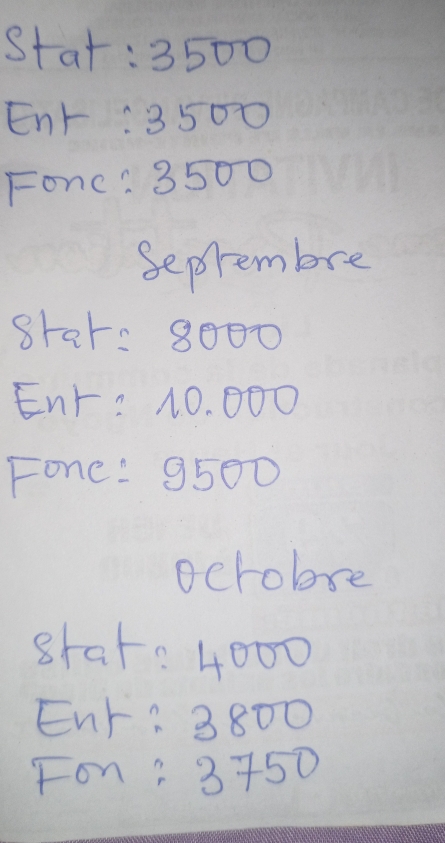 Stat : 3500
Ent : 3500
Fonc : 3500
Septembre
Stat : 8000
Ent : 10.000
Fonc : 9500
Octobre
Stat : 4000
Ent : 3800
Fon : 3750